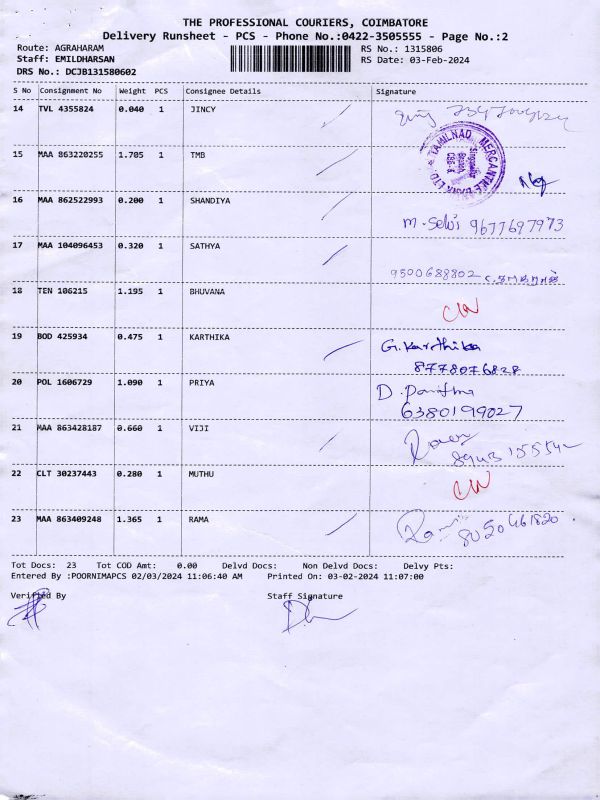 THE PROFESSIONAL COURIERS, COIMBATORE
Delivery Runsheet - PCS - Phone No.:0422-3505555 - Page No.:2
Route: AGRAHARAM RS No.: 1315806
Staff: EMILDHARSAN RS Date: 03-Feb-2024
DRS No.: DCJB131580602
S No Consignment No Weight PCS Consignee Details Signature
14 TVL 4355824 0.040 1 JINCY
TAMILNAD MERCANTILE BANK LTD
15 MAA 863220255 1.705 1 TMB
16 MAA 862522993 0.200 1 SHANDIYA
M. Selvi 9677697973
17 MAA 104096453 0.320 1 SATHYA
9500688802
18 TEN 106215 1.195 1 BHUVANA
19 BOD 425934 0.475 1 KARTHIKA G. Karthika
8778076828
20 POL 1606729 1.090 1 PRIYA
6380199027
21 MAA 863428187 0.660 1 VIJI
22 CLT 30237443 0.280 1 MUTHU
23 MAA 863409248 1.365 1 RAMA
Tot Docs: 23 Tot COD Amt: 0.00 Delvd Docs: Non Delvd Docs: Delvy Pts:
Entered By :POORNIMAPCS 02/03/2024 11:06:40 AM Printed On: 03-02-2024 11:07:00
Verified By Staff Signature